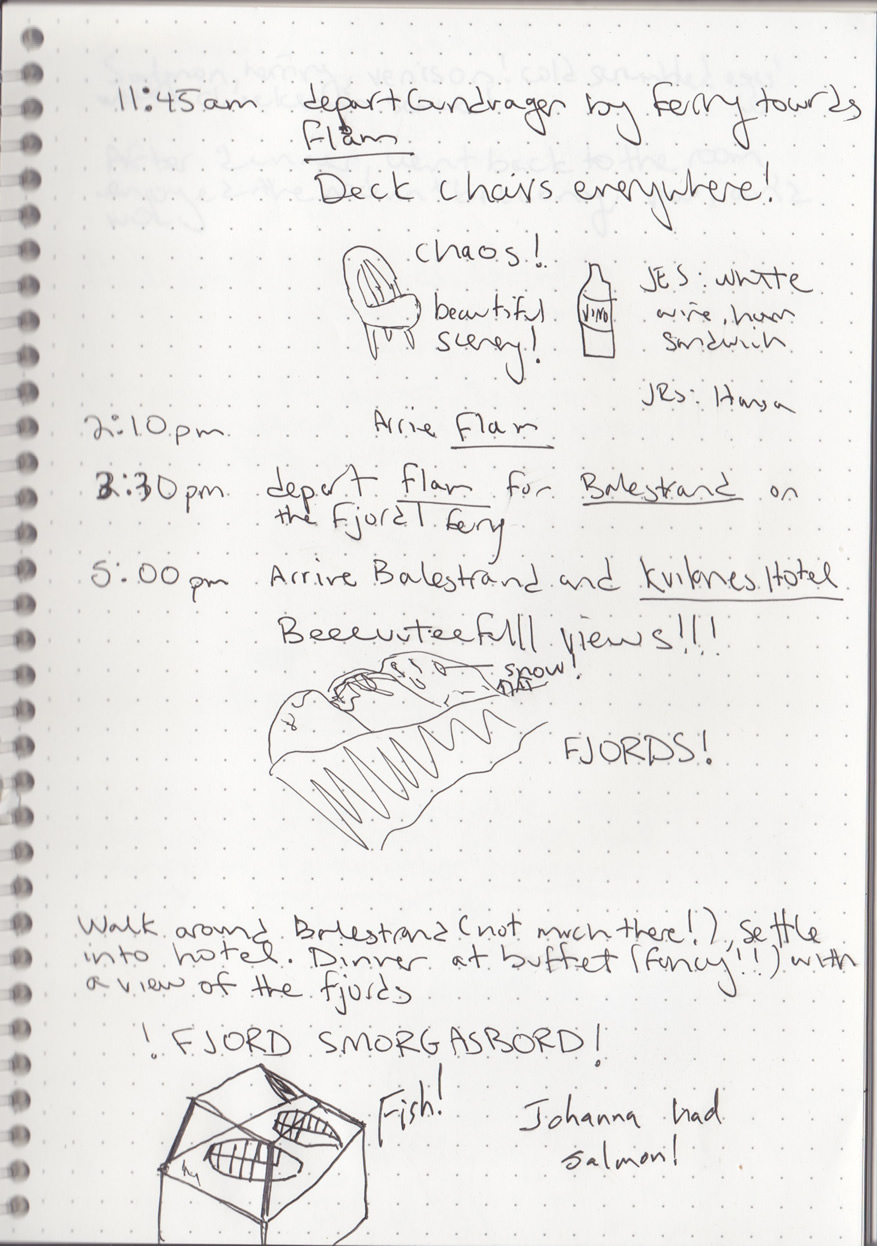 11:45am depart Gundvagen by Ferry towrds
Flam
Deck chairs everywhere!
chaos!
beautiful
scenery!
VINO
JES: white
wine, ham
sandwich
JRs: Hansa
2:10pm Arrive Flam
3:30pm depart Flam for Balestrand on
the Fjord1 Ferry
5:00pm Arrive Balestrand and Kviknes Hotel
Beeeuuteefulll views!!!
snow!
FJORDS!
Walk around Balestrand (not much there!), settle
into hotel. Dinner at buffet (fancy!!) with
a view of the fjords
! FJORD SMORGASBORD!
Fish!
Johanna had
salmon!